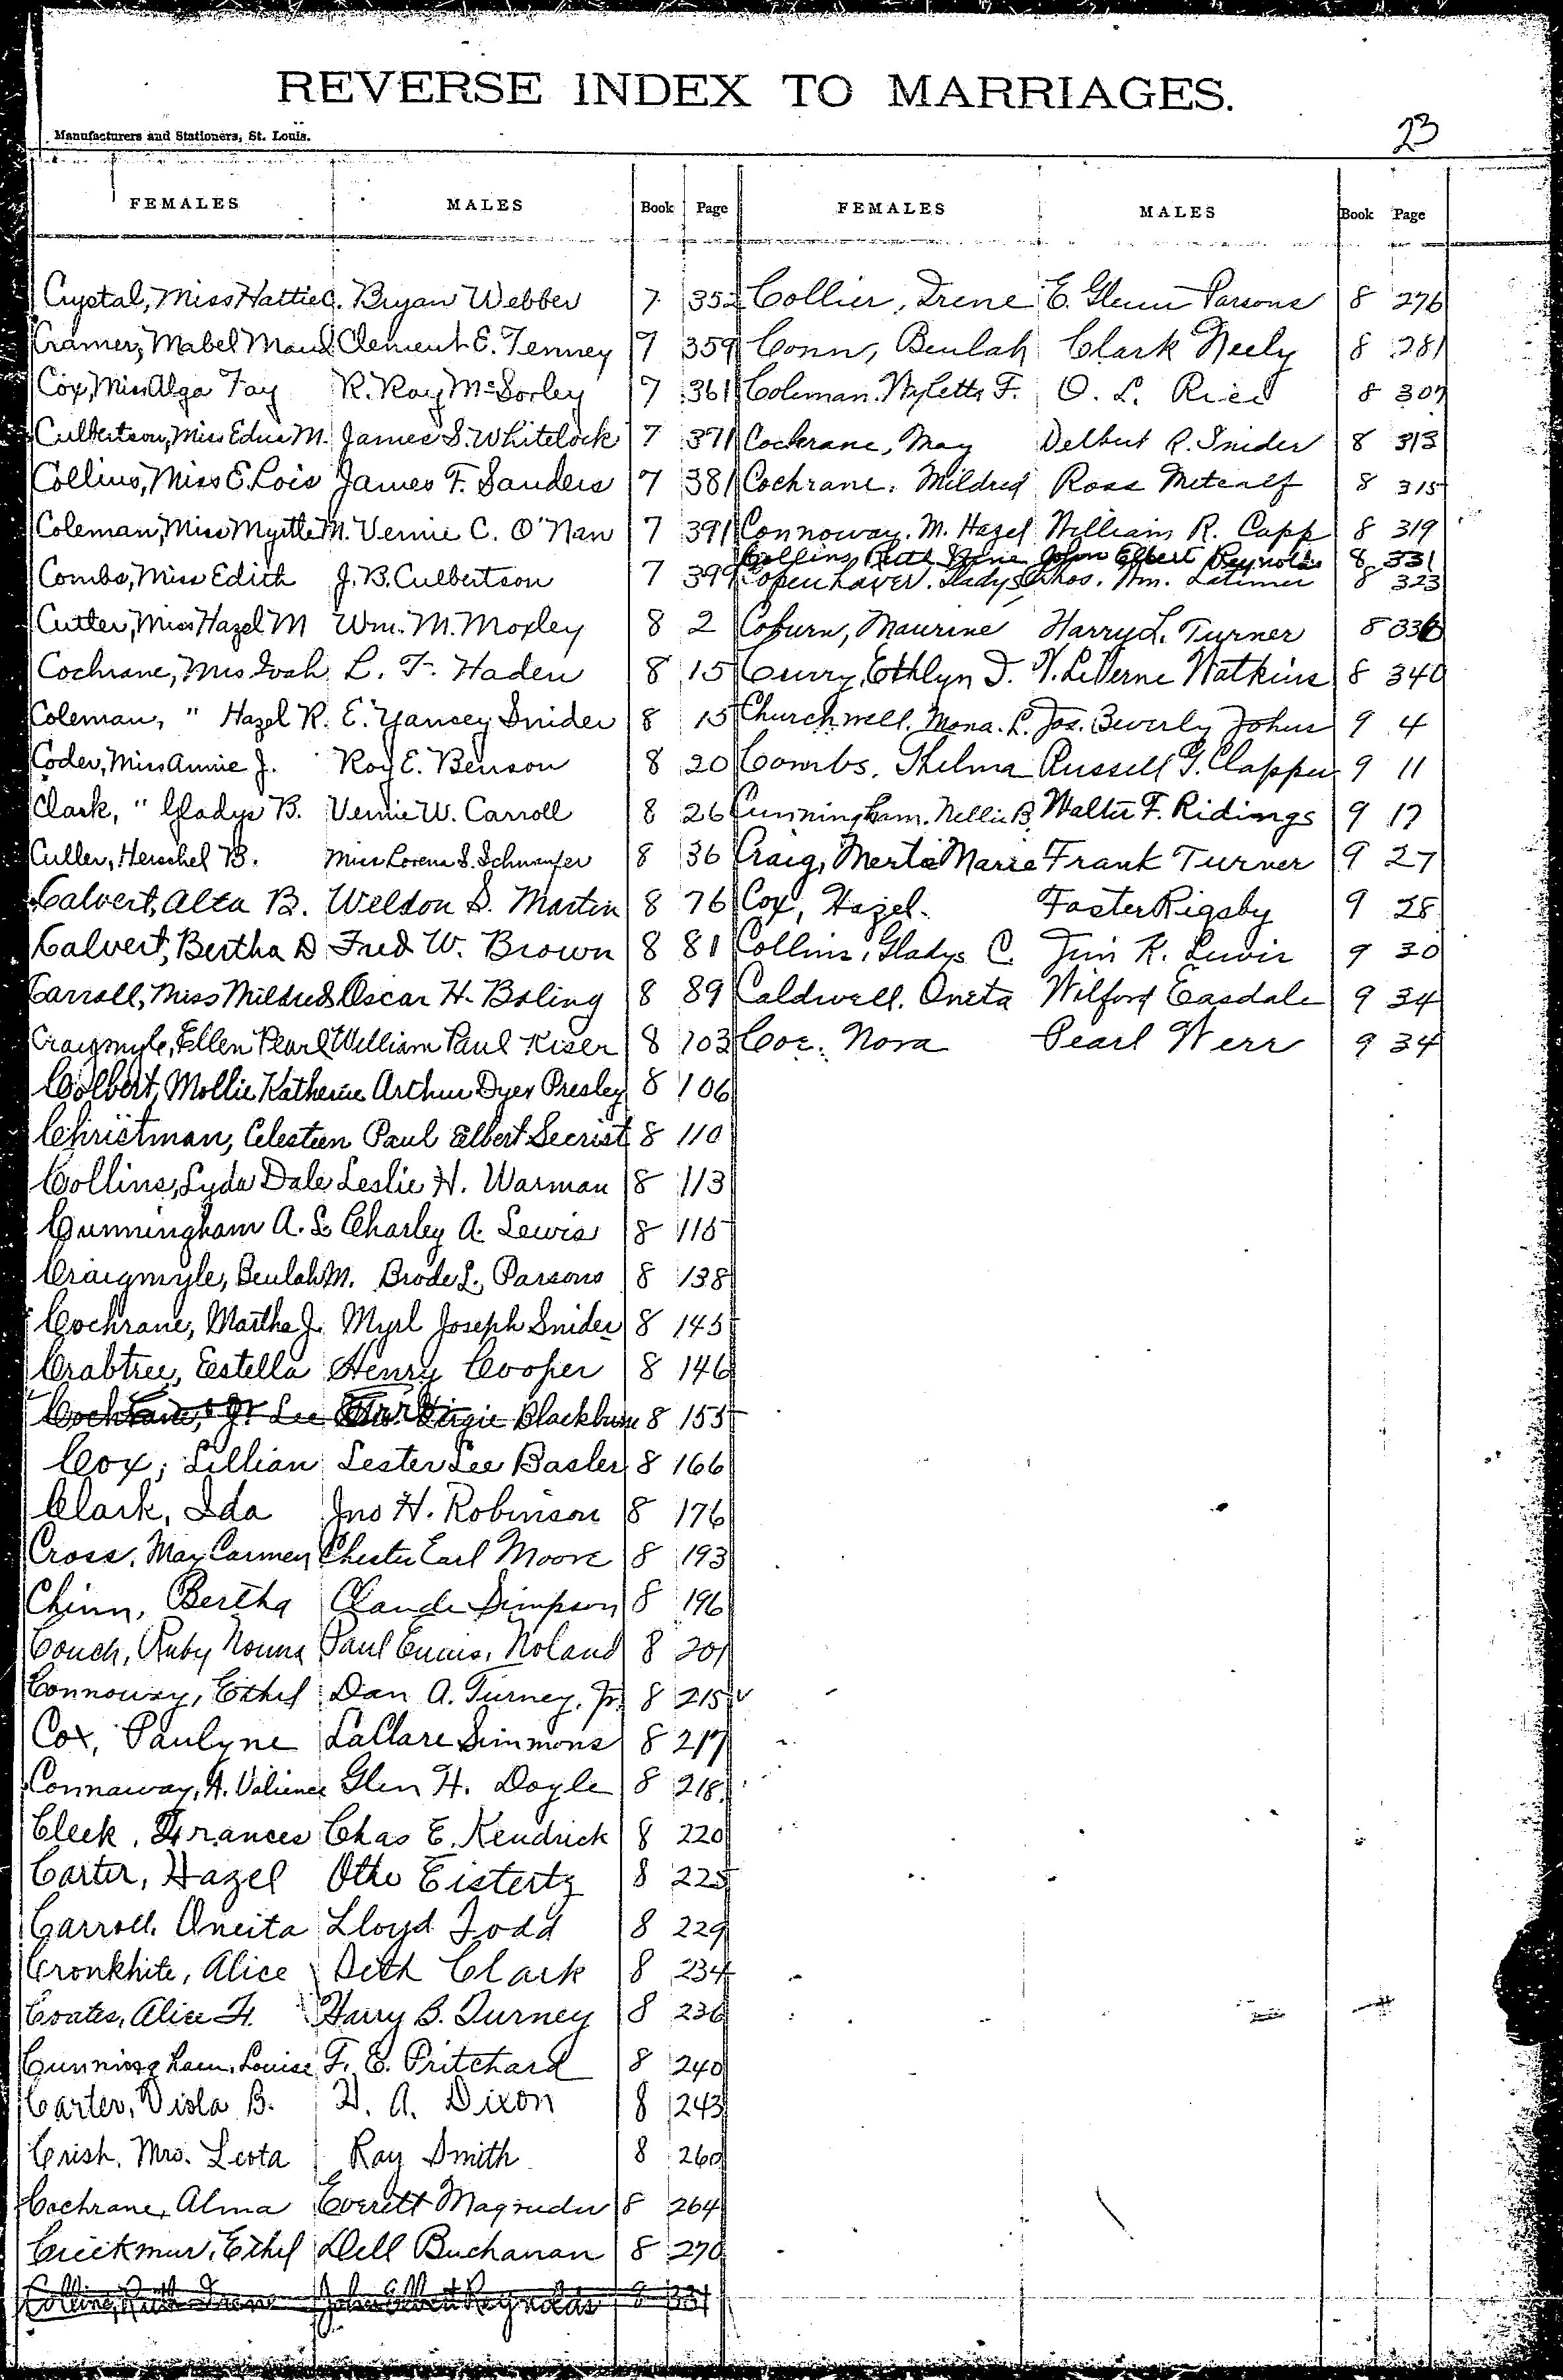 REVERSE INDEX TO MARRIAGES.
23
Manufacturers and Stationers, St. Louis.
FEMALES MALES Book Page FEMALES MALES Book Page
Crystal, Miss Hattie C. Bryan Webber 7 352
Cramer, Mabel Maud Clement E. Tenney 7 359
Cox, Miss Alga Fay R. Ray McSorley 7 361
Culbertson, Miss Edna M. James S. Whitelock 7 371
Collins, Miss E. Lois James F. Sanders 7 381
Coleman, Miss Myrtle M. Vernie C. O'Nan 7 391
Combs, Miss Edith J. B. Culbertson 7 399
Cutler, Miss Hazel M Wm. M. Moxley 8 2
Cochrane, Mrs L. F. Haden 8 15
Coleman, " Hazel R. E. Yancey Snider 8 15
Coder, Miss Annie J. Roy E. Benson 8 20
Clark, " Gladys B. Vernie W. Carroll 8 26
Culler, Herschel B. Miss Lorena S. 8 36
Calvert, Alta B. Weldon S. Martin 8 76
Calvert, Bertha D Fred W. Brown 8 81
Carroll, Miss Mildred Oscar H. Boling 8 89
Craigmyle, Ellen Pearl William Paul Kiser 8 103
Colbert, Mollie Katherine Arthur Dyer Presley 8 106
Christman, Celesteen Paul Elbert Secrist 8 110
Collins, Lyda Dale Leslie H. Warman 8 113
Cunningham A. L. Charley A. Lewis 8 115
Craigmyle, Beulah M. Brode L. Parsons 8 138
Cochrane, Martha J. Myrl Joseph Snider 8 145
Crabtree, Estella Henry Cooper 8 146
Cochrane, Lee Virgie Blackburn 8 155
Cox, Lillian Lester Lee Basler 8 166
Clark, Ida Jno H. Robinson 8 176
Cross, May Carmen Chester Earl Moore 8 193
Chinn, Bertha Claude Simpson 8 196
Couch, Ruby Paul Noland 8 201
Connoway, Ethel Dan A. Turney, Jr. 8 215
Cox, Paulyne LaClare Simmons 8 217
Connaway, H. Glen H. Doyle 8 218
Cleek, Frances Chas E. Kendrick 8 220
Carter, Hazel Otho Eistertz 8 225
Carroll, Oneita Lloyd Todd 8 229
Cronkhite, Alice Seth Clark 8 234
Coates, Alice H. Harry B. Turney 8 236
Cunningham, Louise F. E. Pritchard 8 240
Carter, Viola B. H. A. Dixon 8 243
Crish, Mrs. Leota Ray Smith 8 260
Cochrane, Alma Everett Magruder 8 264
Creekmur, Ethel Dell Buchanan 8 270
Collins, Ruth Irene John Elbert Reynolds 8 331
Collier, Irene E. Glenn Parsons 8 276
Conn, Beulah Clark Neely 8 281
Coleman, F. O. L. Rice 8 307
Cochrane, May Delbert R. Snider 8 313
Cochrane, Mildred Ross Metcalf 8 315
Connoway, M. Hazel William R. Capp 8 319
Collins, Ruth Irene John Elbert Reynolds 8 331
Copenhaver, Gladys Chos. Wm. Latimer 8 323
Coburn, Maurine Harry L. Turner 8 336
Curry, Ethlyn D. V. LeVerne Watkins 8 340
Churchwell, Mona. L. Jos. Beverly Johns 9 4
Combs, Thelma Russell G. Clapper 9 11
Cunningham, Nellie B. Walter F. Ridings 9 17
Craig, Merta Marie Frank Turner 9 27
Cox, Hazel. Foster Rigsby 9 28
Collins, Gladys C. Jim R. Lewis 9 30
Caldwell, Oneta Wilford Easdale 9 34
Coe, Nora Pearl Werr 9 34